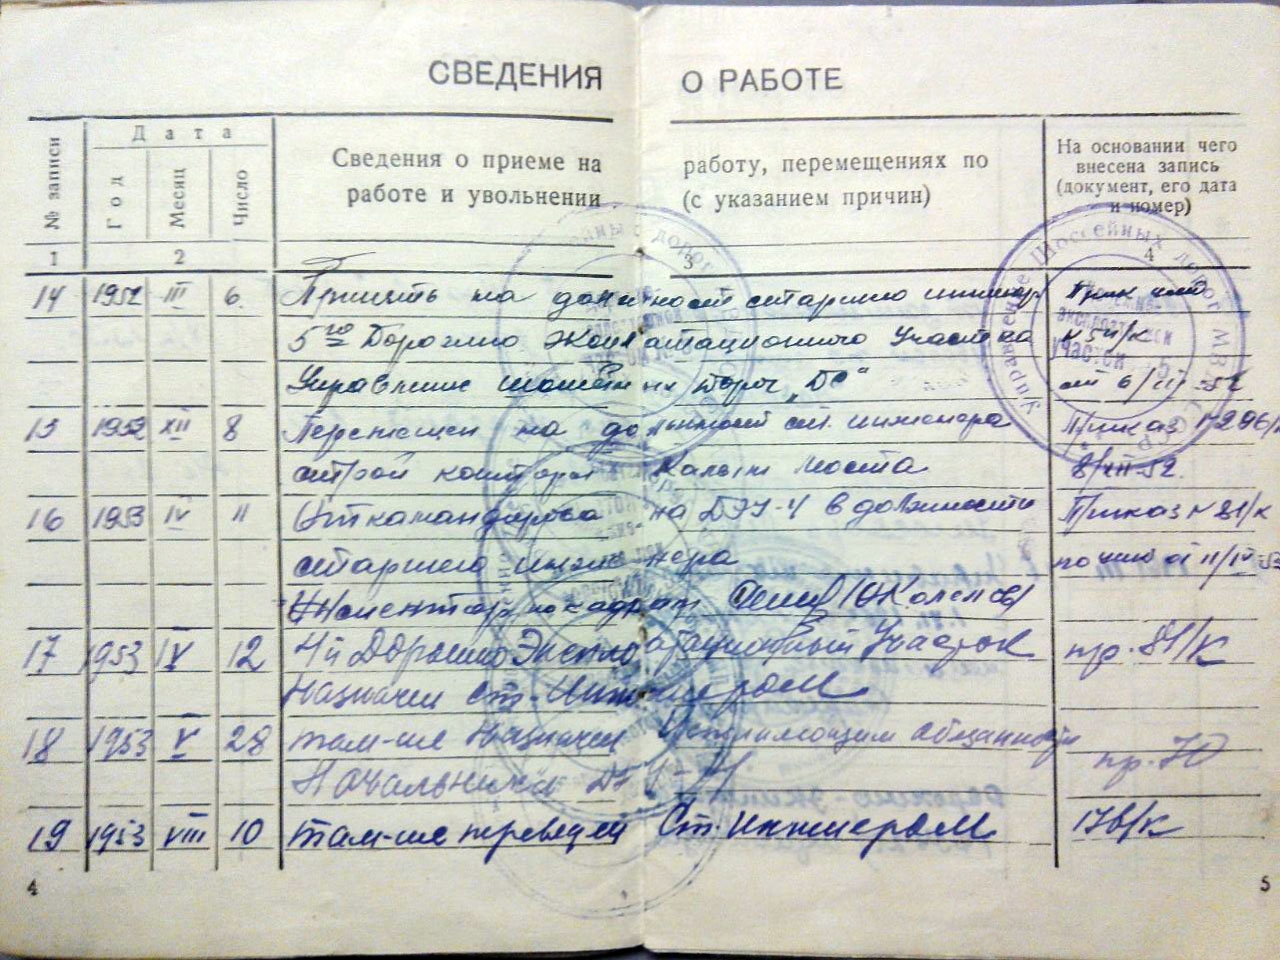 СВЕДЕНИЯ О РАБОТЕ
№ записи
Дата
Год
Месяц
Число
Сведения о приеме на работу, перемещениях по
работе и увольнении (с указанием причин)
На основании чего
внесена запись
(документ, его дата
и номер)
1 2 3 4
14 1952 III 6. Принять на должност старшего инженер
5го Дорожно Эксплатационного Участка
Управление шоссейных дорог
от 6/III-52
15 1952 XII 8 Перемещен на должност ст. инженера Приказ 296/к
строй конторы Калыт моста 8/XII-52.
16 1953 IV 11 Откамандирова на ДЭУ-4 в должности Приказ № 81/к
старшего инженера по от 11/IV-53
по кадрам
17 1953 IV 12 4й Дорожно Эксплоатационный Участок пр. 81/к
Назначен Ст. Инженером
18 1953 V 28 там-же Назначен обязанности пр. 70
Начальника
19 1953 VIII 10 там-же переведен Ст. Инженером 176/к
Управление Шоссейных дорог МВД СССР
участок 5
4
5